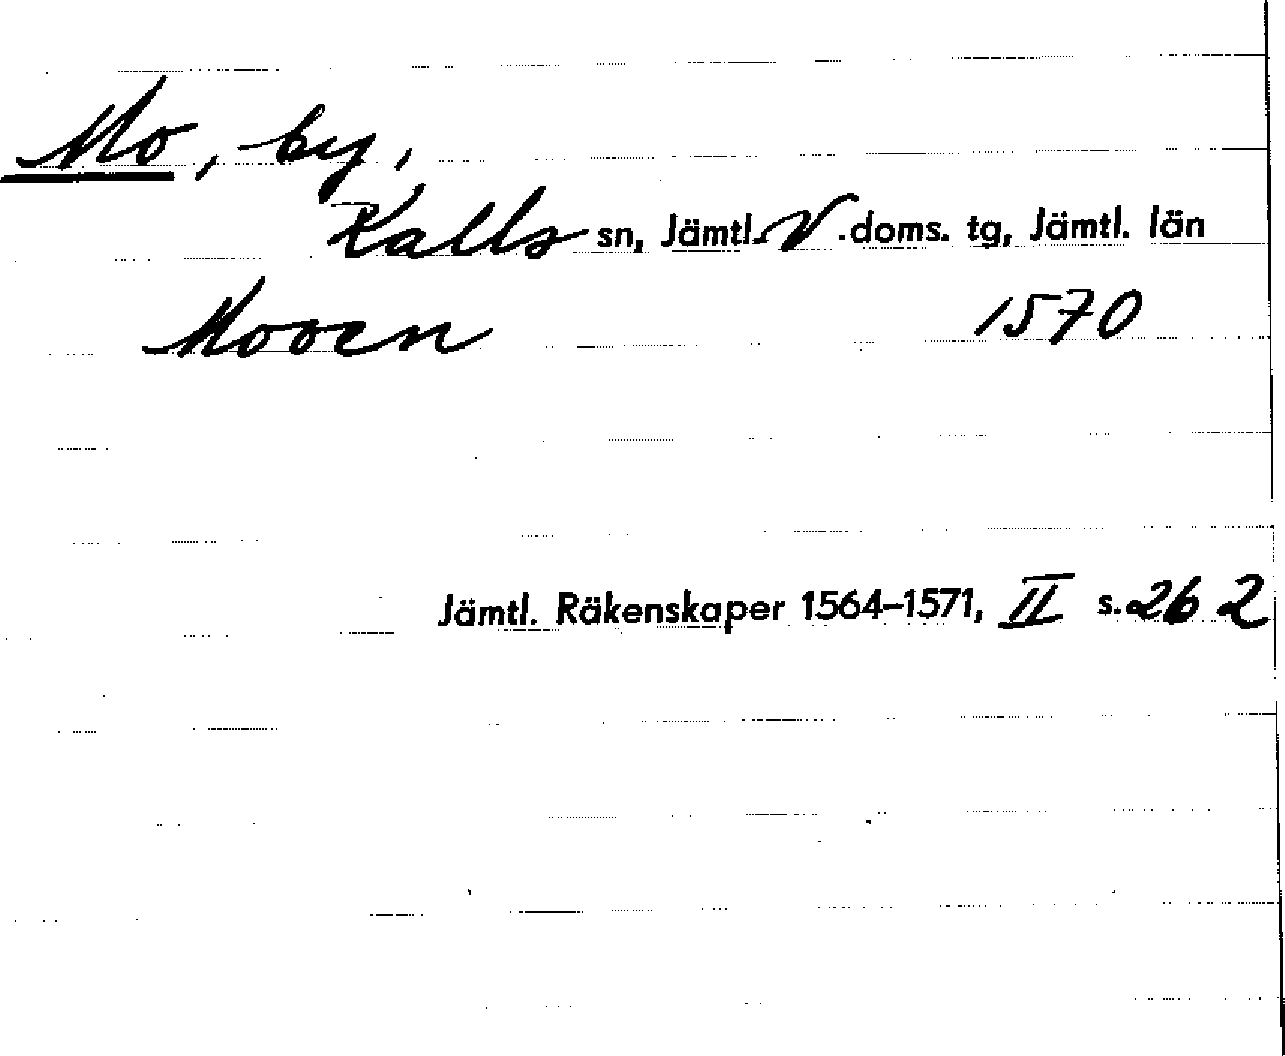 Mo, by,
Kalls sn, Jämtl. V. doms. tg, Jämtl. län
Mooen 1570
Jämtl. Räkenskaper 1564–1571, II s. 262